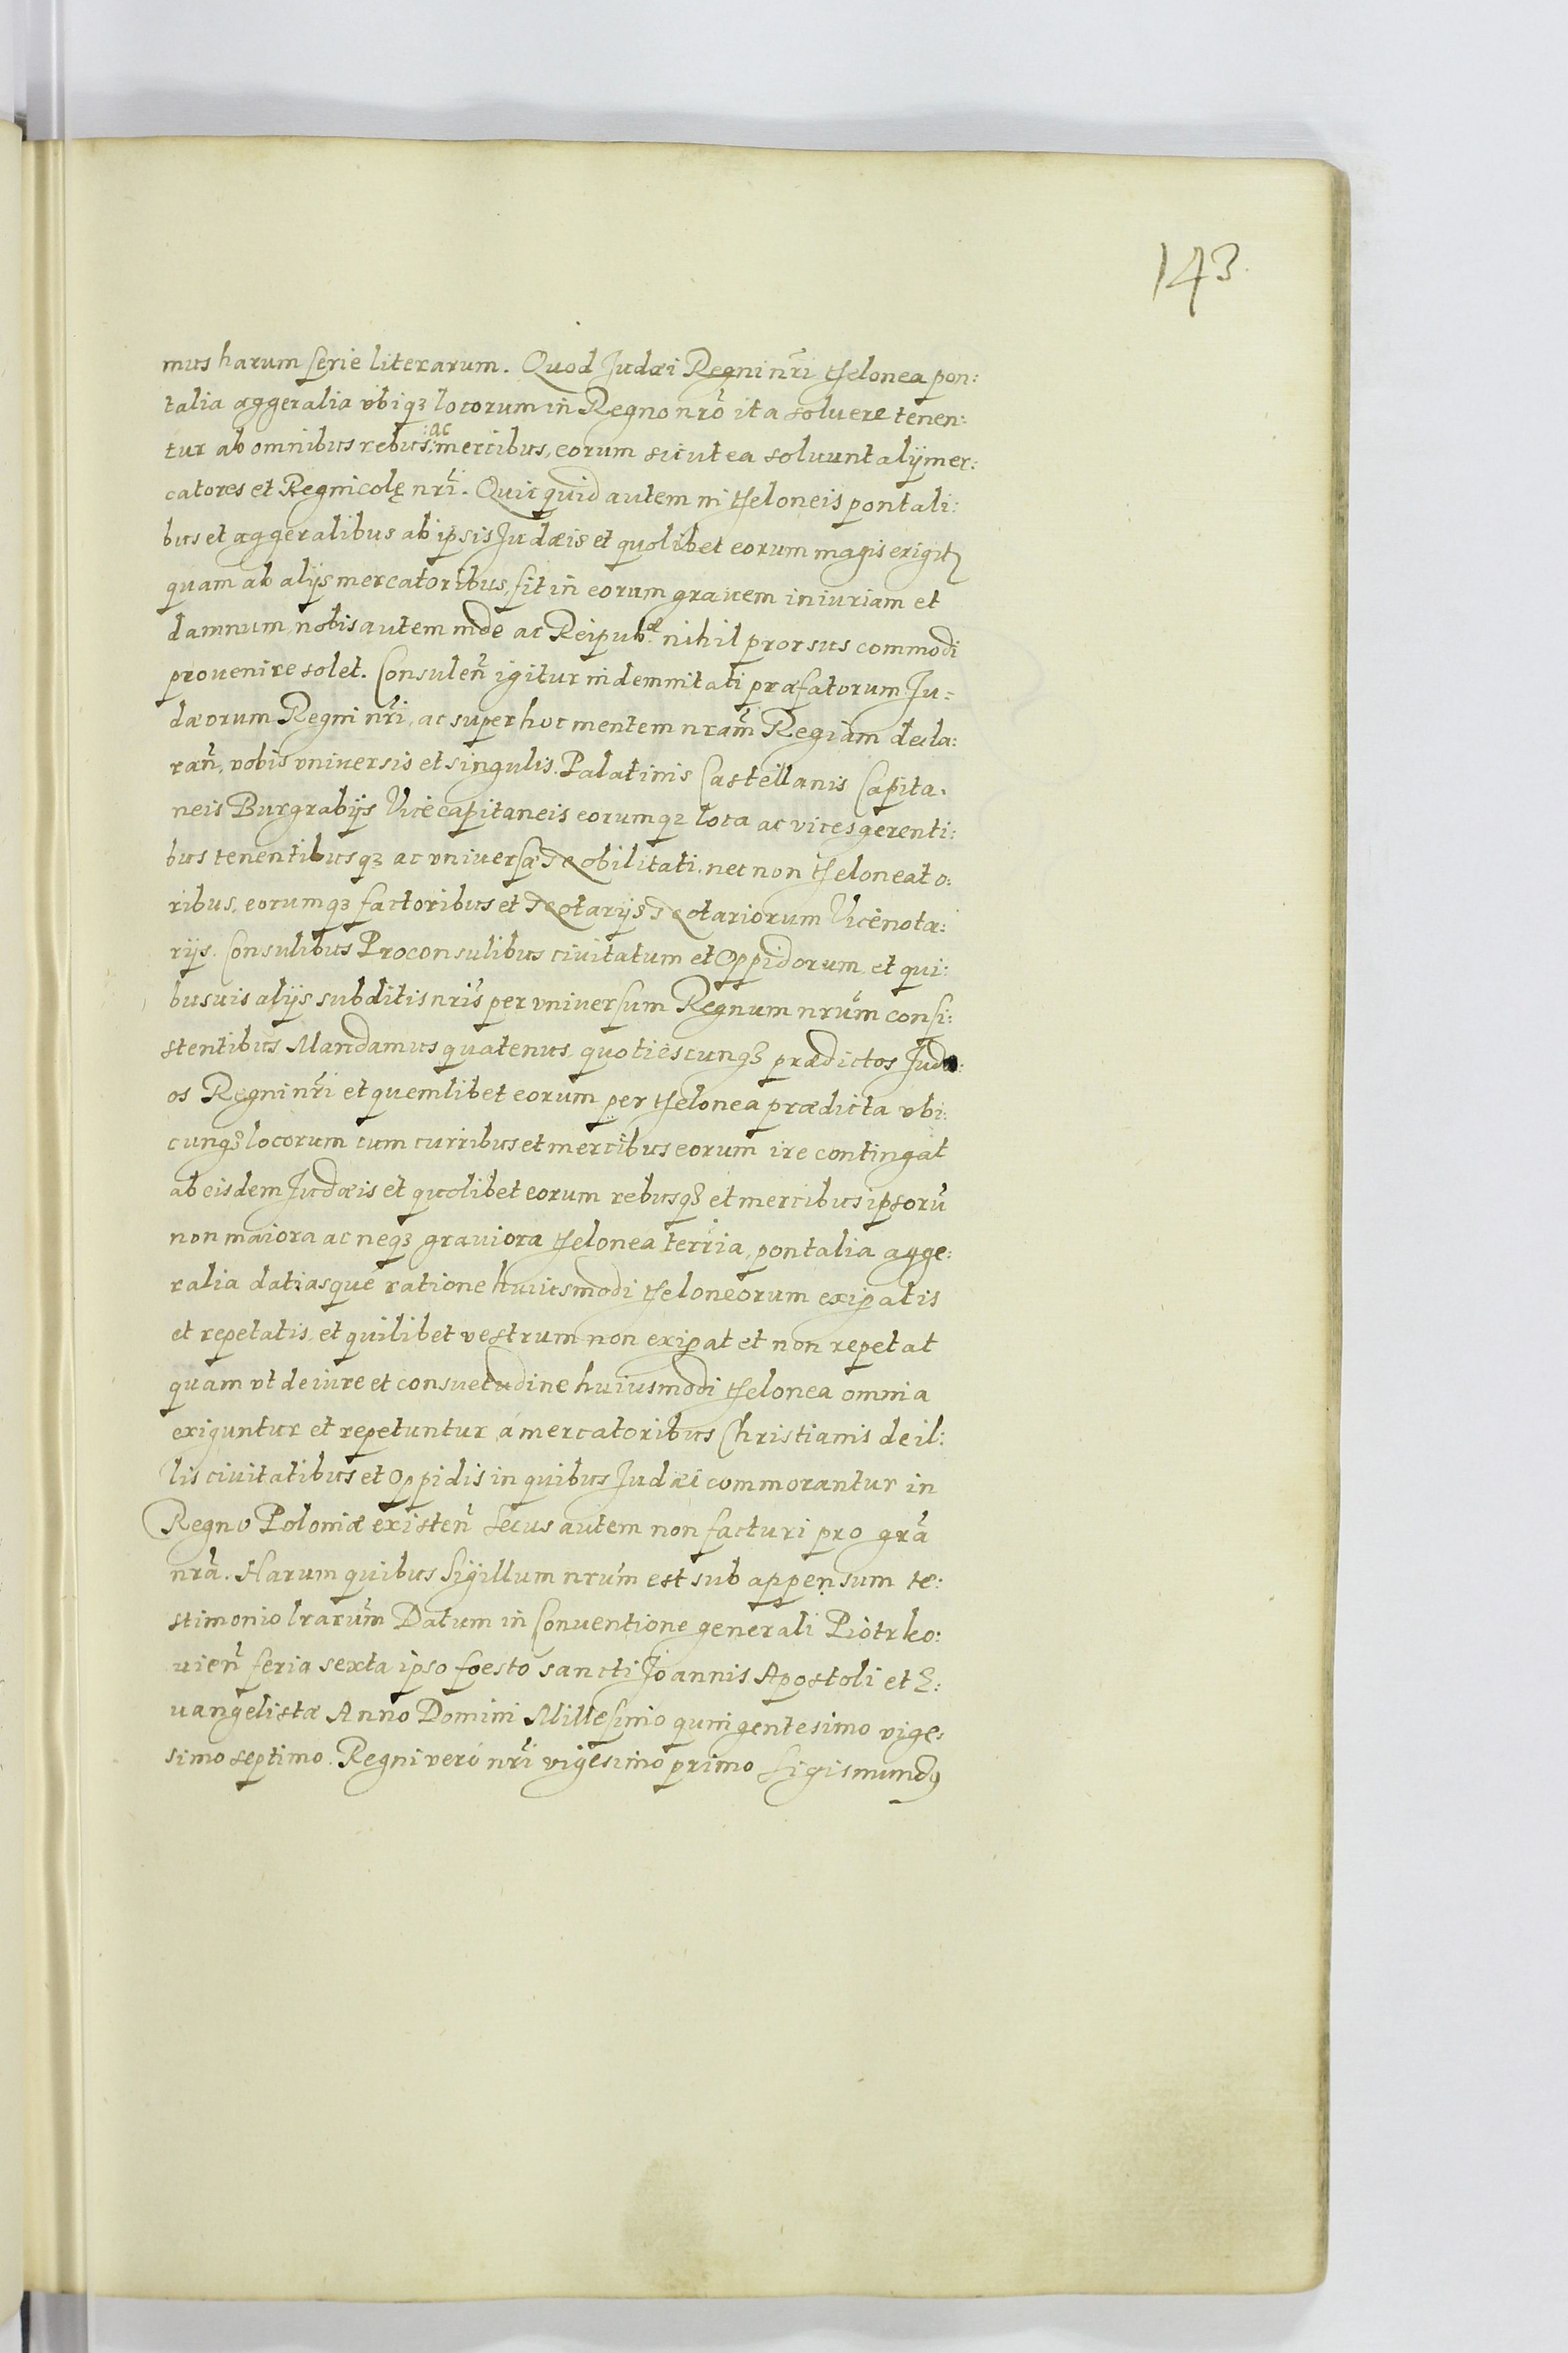 143.
mus harum serie literarum. Quod Judæi Regni nr̃i thelonea pon:
talia aggeralia ubiqꝫ locorum in Regno nrõ ita soluere tenen:
tur ab omnibus rebus, ac mercibus, eorum sicut ea soluunt alij mer:
catores et Regnicolę nrĩ. Quicquid autem in theloneis pontali:
bus et aggeralibus ab ipsis Judæis et quolibet eorum magis exigitꝫ
quam ab alijs mercatoribus, fit in eorum grauem iniuriam et
damnum, nobis autem inde ac Reipub:æ nihil prorsus commodi
prouenire solet. Consulen̄ igitur indemnitati præfatorum Ju:
dæorum Regni nr̃i, ac super hoc mentem nram̃ Regiam decla:
ran̄, vobis vniuersis et singulis. Palatinis Castellanis Capita:
neis Burgrabijs Vicecapitaneis eorumqꝫ loca ac vices gerenti:
bus tenentibusqꝫ ac vniuersæ Nobilitati. nec non theloneato:
ribus, eorumqꝫ factoribus et Notarijs Notariorum Vicenota:
rijs. Consulibus Proconsulibus ciuitatum et Oppidorum et qui:
busuis alijs subditis nris̃ per vniuersum Regnum nrum̃ consi:
stentibus Mandamus quatenus quotiescunqꝫ prædictos Judæ:
os Regni nr̃i et quemlibet eorum per thelonea prædicta vbi:
cunqꝫ locorum cum curribus et mercibus eorum ire contingat
ab eisdem Judæis et quolibet eorum rebusqꝫ et mercibus ipsorū
non maiora ac neqꝫ grauiora thelonea terria, pontalia agge:
ralia datiasque ratione huiusmodi theloneorum exigatis
et repetatis et quilibet vestrum non exigat et non repetat
quam vt de iure et consuetudine huiusmodi thelonea omnia
exiguntur et repetuntur à mercatoribus Christianis de il:
lis ciuitatibus et Oppidis in quibus Judæi commorantur in
Regno Poloniæ existen̄ secus autem non facturi pro grã
nrã. Harum quibus Sigillum nrum̃ est sub appensum te:
stimonio lrarum̃ Datum in Conuentione generali Piotrko:
uien̄ feria sexta ipso foesto sancti Joannis Apostoli et E:
uangelistæ Anno Domini Millesimo quingentesimo vige:
simo septimo. Regni verò nr̃i vigesimo primo Sigismundꝯ